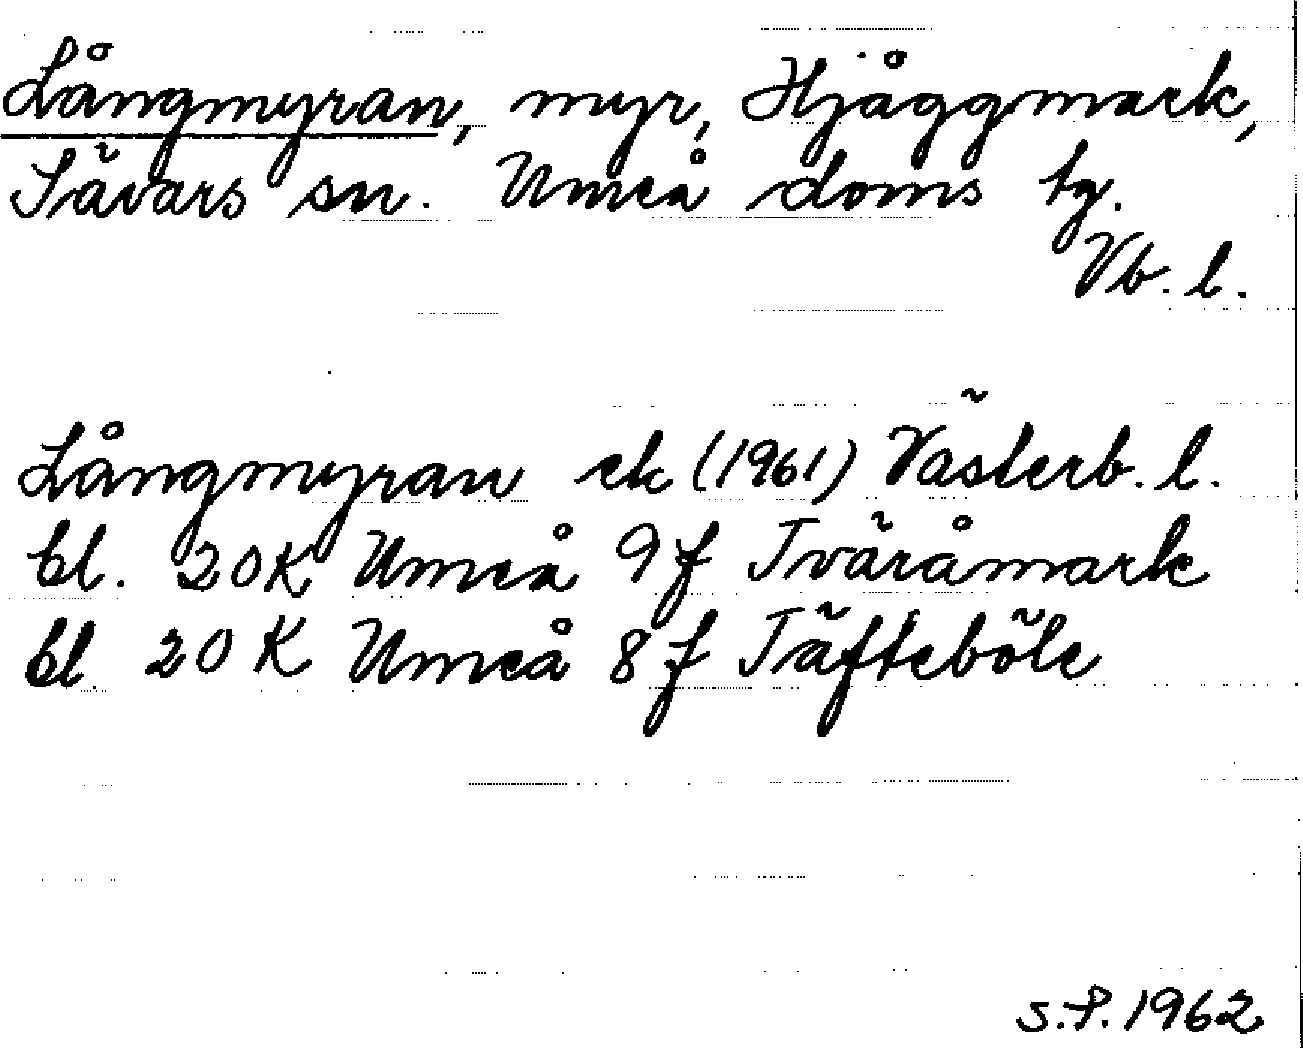 Långmyran, myr, Hjåggmark,
Sävars sn. Umeå doms tg.
Vb. l.
Långmyran ek (1961) Västerb. l.
bl. 20K Umeå 9f Tväråmark
bl. 20K Umeå 8f Täfteböle
S.P. 1962